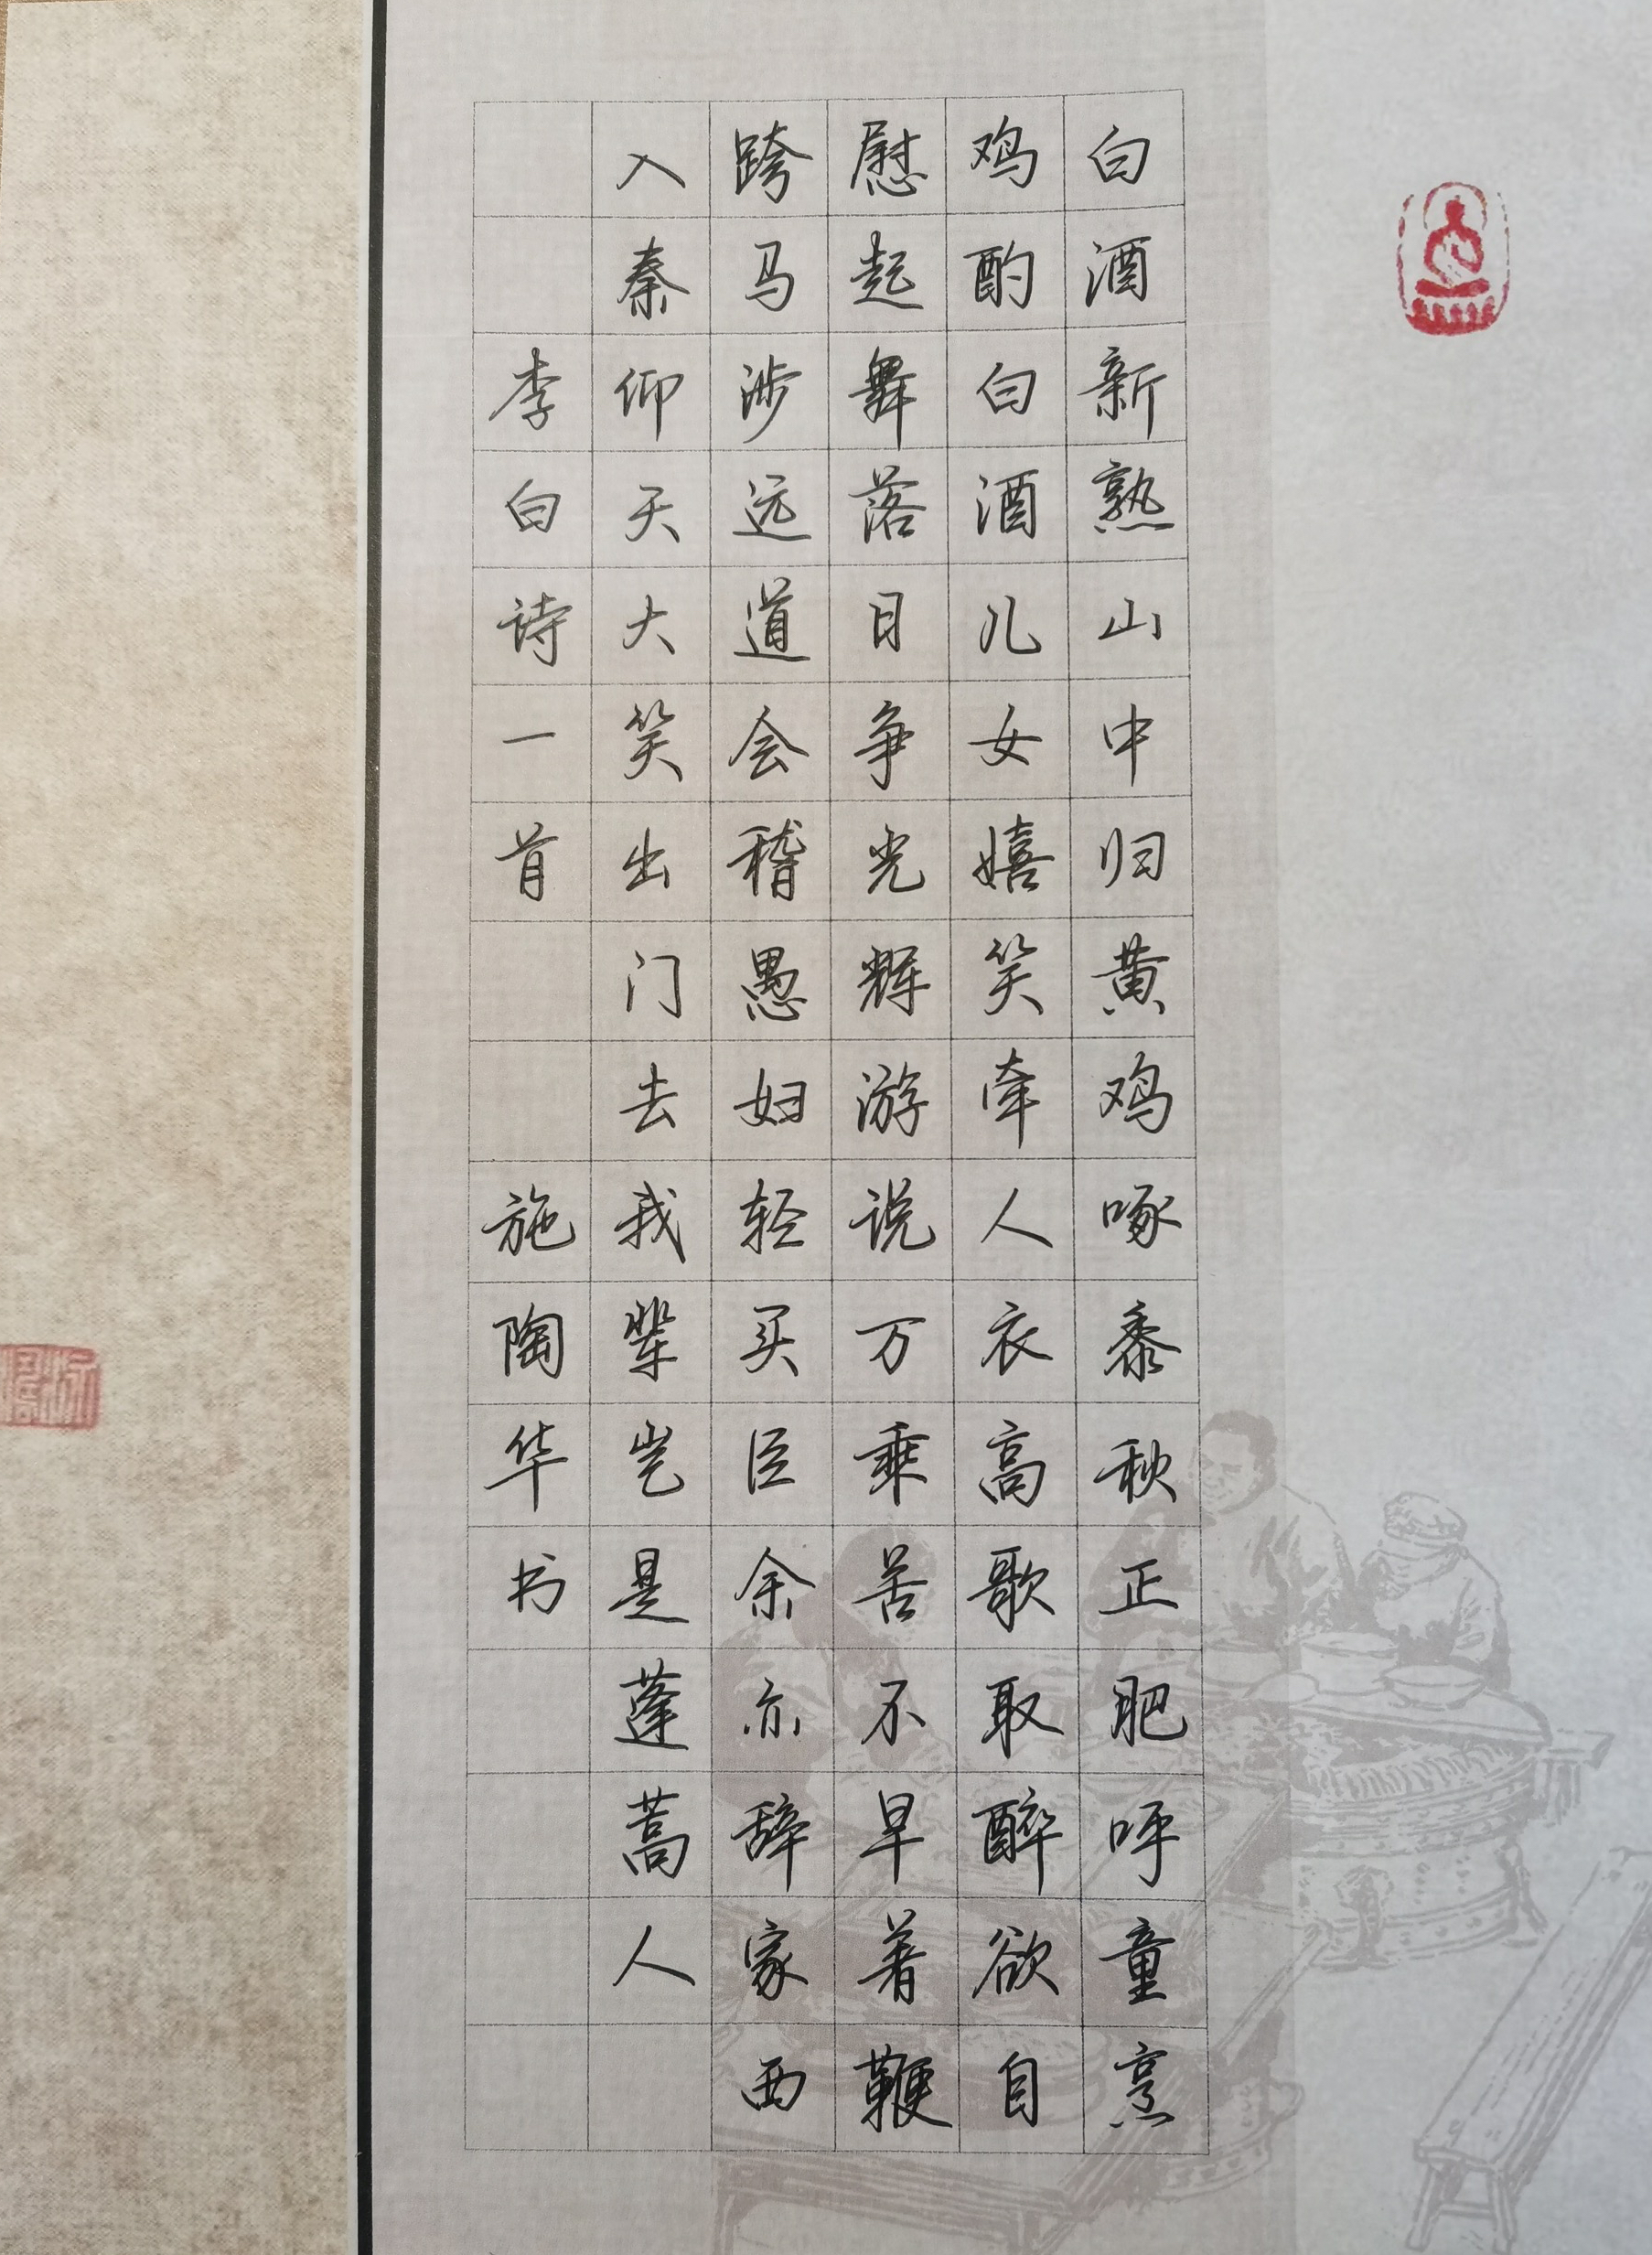 白酒新熟山中归黄鸡啄黍秋正肥呼童烹
鸡酌白酒儿女嬉笑牵人衣高歌取醉欲自
慰起舞落日争光辉游说万乘苦不早著鞭
跨马涉远道会稽愚妇轻买臣余亦辞家西
入秦仰天大笑出门去我辈岂是蓬蒿人
李白诗一首 施陶华书